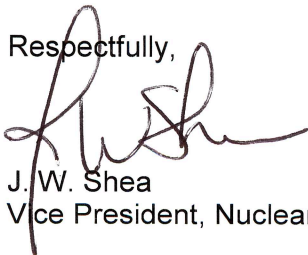 Respectfully,
J. W. Shea
Vice President, Nuclear